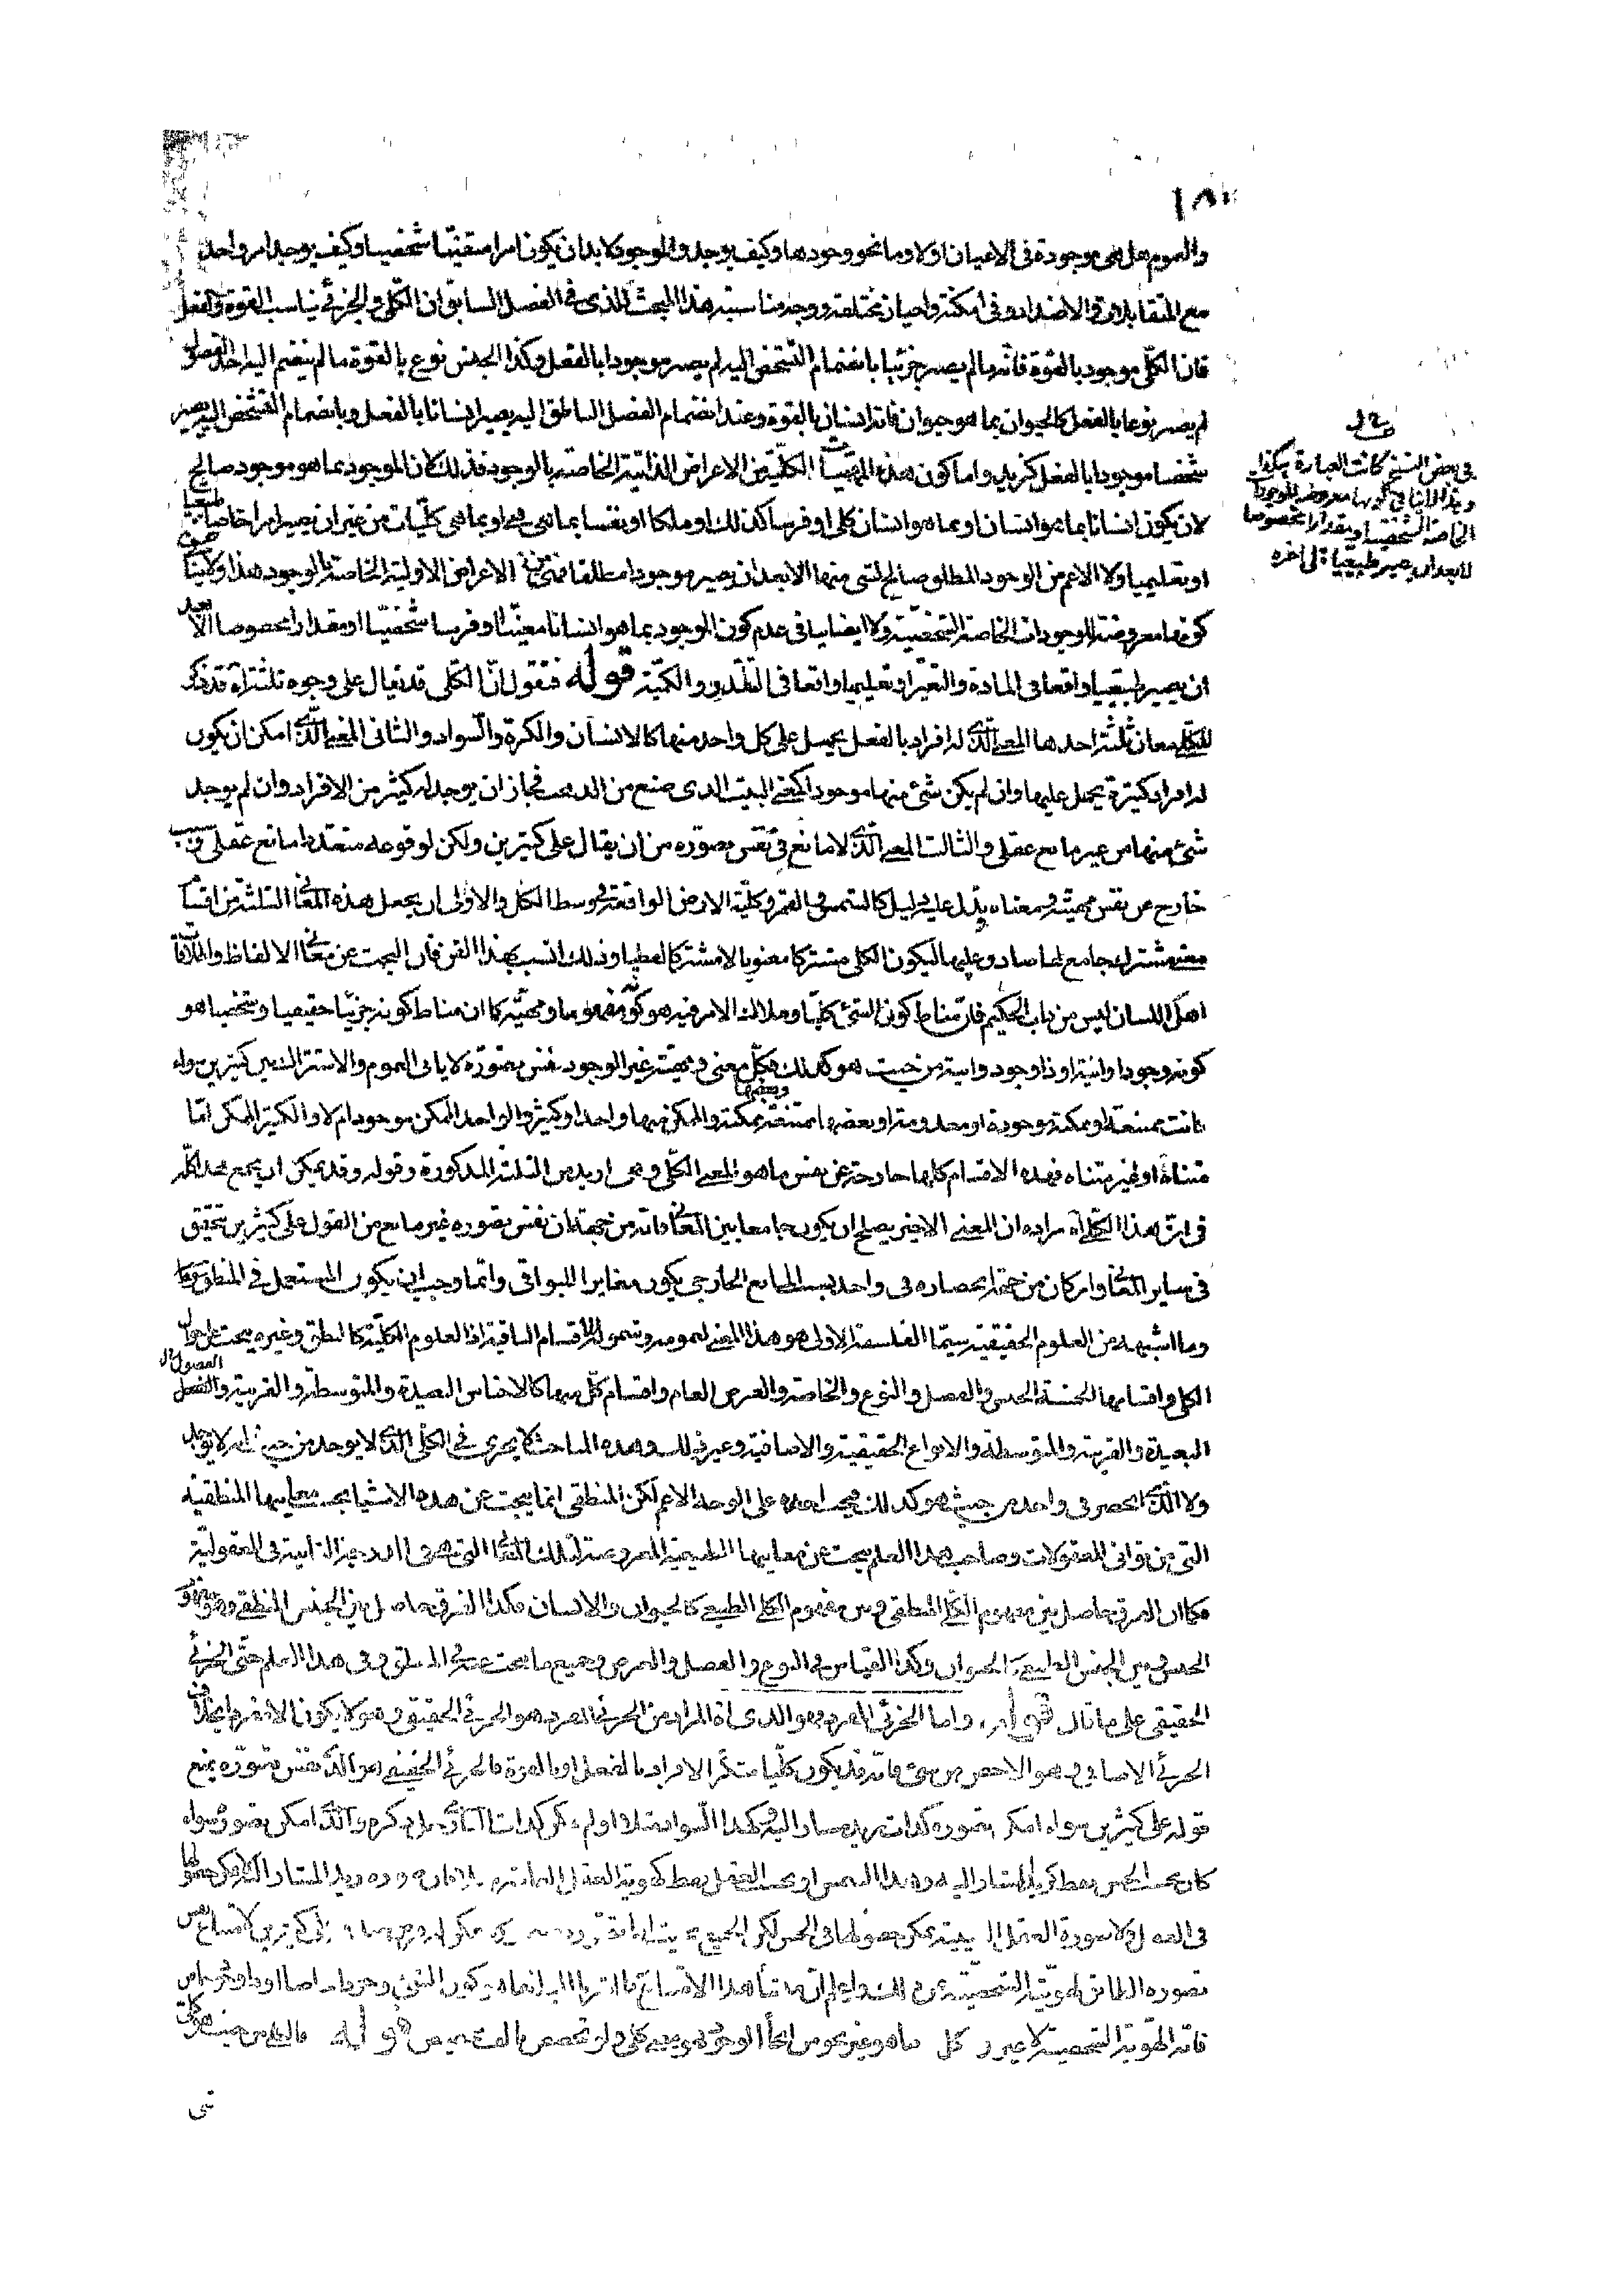 ١٨٠
والعموم هل هى موجودة فى الاعيان اولا وما نحو وجودها وكيف يوجد والموجود لابد ان يكون امرا متعيّنا شخصيا وكيف يوجد امر واحد
مع المتقابلات والاضداد وفى امكنة واحيان مختلفة ووجه مناسبة هذا المبحث للذى فى الفصل السابق ان الكلى والجزئى يناسب القوة والفعل
فان الكلّى موجود بالقوة فانه ما لم يصر جزئيا بانضمام التشخص اليه لم يصر موجودا بالفعل وكذا الجنس نوع بالقوة ما لم ينضم اليه احد الفصول
لم يصر نوعا بالفعل كالحيوان بما هو حيوان فانه انسان بالقوة وعند انضمام الفصل الناطق اليه يصير انسانا بالفعل وبانضمام التشخص اليه يصير
شخصا موجودا بالفعل كزيد واما كون هذه المهيّات الكلّية من الاعراض الذاتية الخاصة بالوجود فذلك لان الموجود بما هو موجود صالح
لان يكون انسانا بما هو انسان او بما هو انسان كلى او فرسا كذلك او ملكا او نفسا بما هى هى او بما هى كلّيات من غير ان يصير امرا خاصا طبيعيا
او تعليميا ولا الاعم من الوجود المطلق صالح لشئ منها الا بعد ان يصير موجودا مطلقا فهى من الاعراض الاولية الخاصة بالوجود هذا ولا ينافى
كونها معروضة للوجودات الخاصة الشخصيّة ولا ايضا ينافى عدم كون الموجود بما هو انسانا معيّنا او فرسا شخصيّا او مقدارا مخصوصا الا بعد
ان يصير طبيعيا واقعا فى المادة والتغيّر او تعليميا واقعا فى التقدير والكميّة قوله فنقول انّ الكلى قد يقال على وجوه ثلثة اه قد ذكر
للكلى معان ثلثة احدها المعنى الذى له افراد بالفعل يحمل على كل واحد منها كالانسان والكرة والسواد والثانى المعنى الذى امكن ان يكون
له افراد كثيرة يحمل عليها وان لم يكن شئ منها موجودا كمعنى البيت الذى صنع من الذهب فجاز ان يوجد له كثير من الافراد وان لم يوجد
شئ منها من غير مانع عقلى والثالث المعنى الذى لا مانع فى نفس تصوّره من ان يقال على كثيرين ولكن لوقوعه متعددا مانع عقلى وسبب
خارج عن نفس مهيته ومعناه يدل عليه دليل كالشمس والقمر وكليّة الارض الواقعة فى وسط الكل والاولى ان يجعل هذه المعانى الثلثة من اقسام
معنى مشترك جامع لها صادق عليها ليكون الكلى مشتركا معنويا لا مشتركا لفظيا وذلك انسب بهذا الفن فان البحث عن معانى الالفاظ واطلاقات
اهل اللسان ليس من داب الحكيم فان مناط كون الشئ كليّا وملاك الامر فيه هو كونه مفهوما ومهيّة كما ان مناط كونه جزئيّا حقيقيا وشخصيا هو
كونه وجودا وانية او ذا وجود وانية من حيث هو كذلك فكلّ معنى ومهيّة غير الوجود نفس تصوّره لا يابى العموم والاشتراك بين كثيرين سواء
كانت ممتنعة او ممكنة موجودة او معدومة او بعضها ممتنعة وبعضها ممكنة والممكن منها واحدا او كثيرا والواحد الممكن موجود ام لا والكثير الممكن امّا
متناه او غير متناه فهذه الاقسام كلها خارجة عن نفس ماهو المعنى الكلّى وهى ازيد من الثلثة المذكورة وقوله وقد يمكن ان يجمع هذا كلّه
فى انّ هذا الكلى اه مراده ان المعنى الاخير يصلح ان يكون جامعا بين المعانى فانه من جهة ان نفس تصوره غير مانع من القول على كثيرين يتحقق
فى ساير المعانى وان كان من جهة انحصاره فى واحد بسبب المانع الخارجى يكون مغايرا للبواقى وانّما وجب ان يكون المستعمل فى المنطق
وما اشبهه من العلوم الحقيقية سيّما الفلسفة الاولى هو هذا المعنى لعمومه وشموله للاقسام الباقية اذ العلوم الكلّية كالمنطق وغيره يبحث عن احوال
الكلى واقسامها الخمسة الجنس والفصل والنوع والخاصة والعرض العام واقسام كلّ منها كالاجناس البعيدة والمتوسطة والقريبة والفصول
البعيدة والقريبة والمتوسطة والانواع الحقيقية والاضافية وغير ذلك وهذه المباحث كما يجرى فى الكلى الذى لا يوجد من حيث انه لا يوجد
ولا الذى انحصر فى واحد من حيث هو كذلك فيجب اخذه على الوجه الاعم لكن المنطقى انما يبحث عن هذه الاشيا بحسب معانيها المنطقية
التى من ثوانى المعقولات وصاحب هذا العلم يبحث عن معانيها الطبيعية المعروضة لتلك المعانى التى هى فى الدرجة الثانية فى المعقولية
فكما ان الفرق حاصل بين مفهوم الكلى المنطقى وبين مفهوم الكلى الطبيعى كالحيوان والانسان فكذا الفرق حاصل بين الجنس المنطقى وهو مفهوم
الجنس وبين الجنس الطبيعى كالحيوان وكذا القياس فى النوع والفصل والعرض وجميع ما يبحث عنه فى المنطق وفى هذا العلم حتّى الجزئى
الحقيقى على ما قال قوله واما الجزئى المفرد فهو الذى اه المراد من الجزئى المفرد هو الجزئى الحقيقى وهو لا يكون الا مفردا بخلاف
الجزئى الاضافى وهو الاخص من شئ فانه قد يكون كليّا متكثّر الافراد بالفعل او بالقوة فالجزئى الحقيقى هو الذى نفس تصوّره يمنع
قوله على كثيرين سواء امكن تصوره كذات زيد مشارا اليه وكهذا السواد مثلا او لم يمكن والذى امكن تصوره سواء
كان بحسب الحس فقط كزيد المشار اليه وهذا الشمس او بحسب العقل فقط كهوية العقل
تصوره المطابق لهويته الشخصيّة عن ذلك واعلم ان منشأ هذا الامتناع
فانه الهويّة الشخصيّة لا غير وكل ماهو غير نحو من انحأ الوجود فهو معنى كلى ولو تخصص بالف تخصيص قوله فالكلى من حيث هو كلى
شى
فى بعض النسخ كانت العبارة هكذا
وهذا لا ينافى كونها معروضة للوجودات
الخاصة الشخصية او مقدارا مخصوصا
لا بعد ان يصير طبيعيا الى آخره